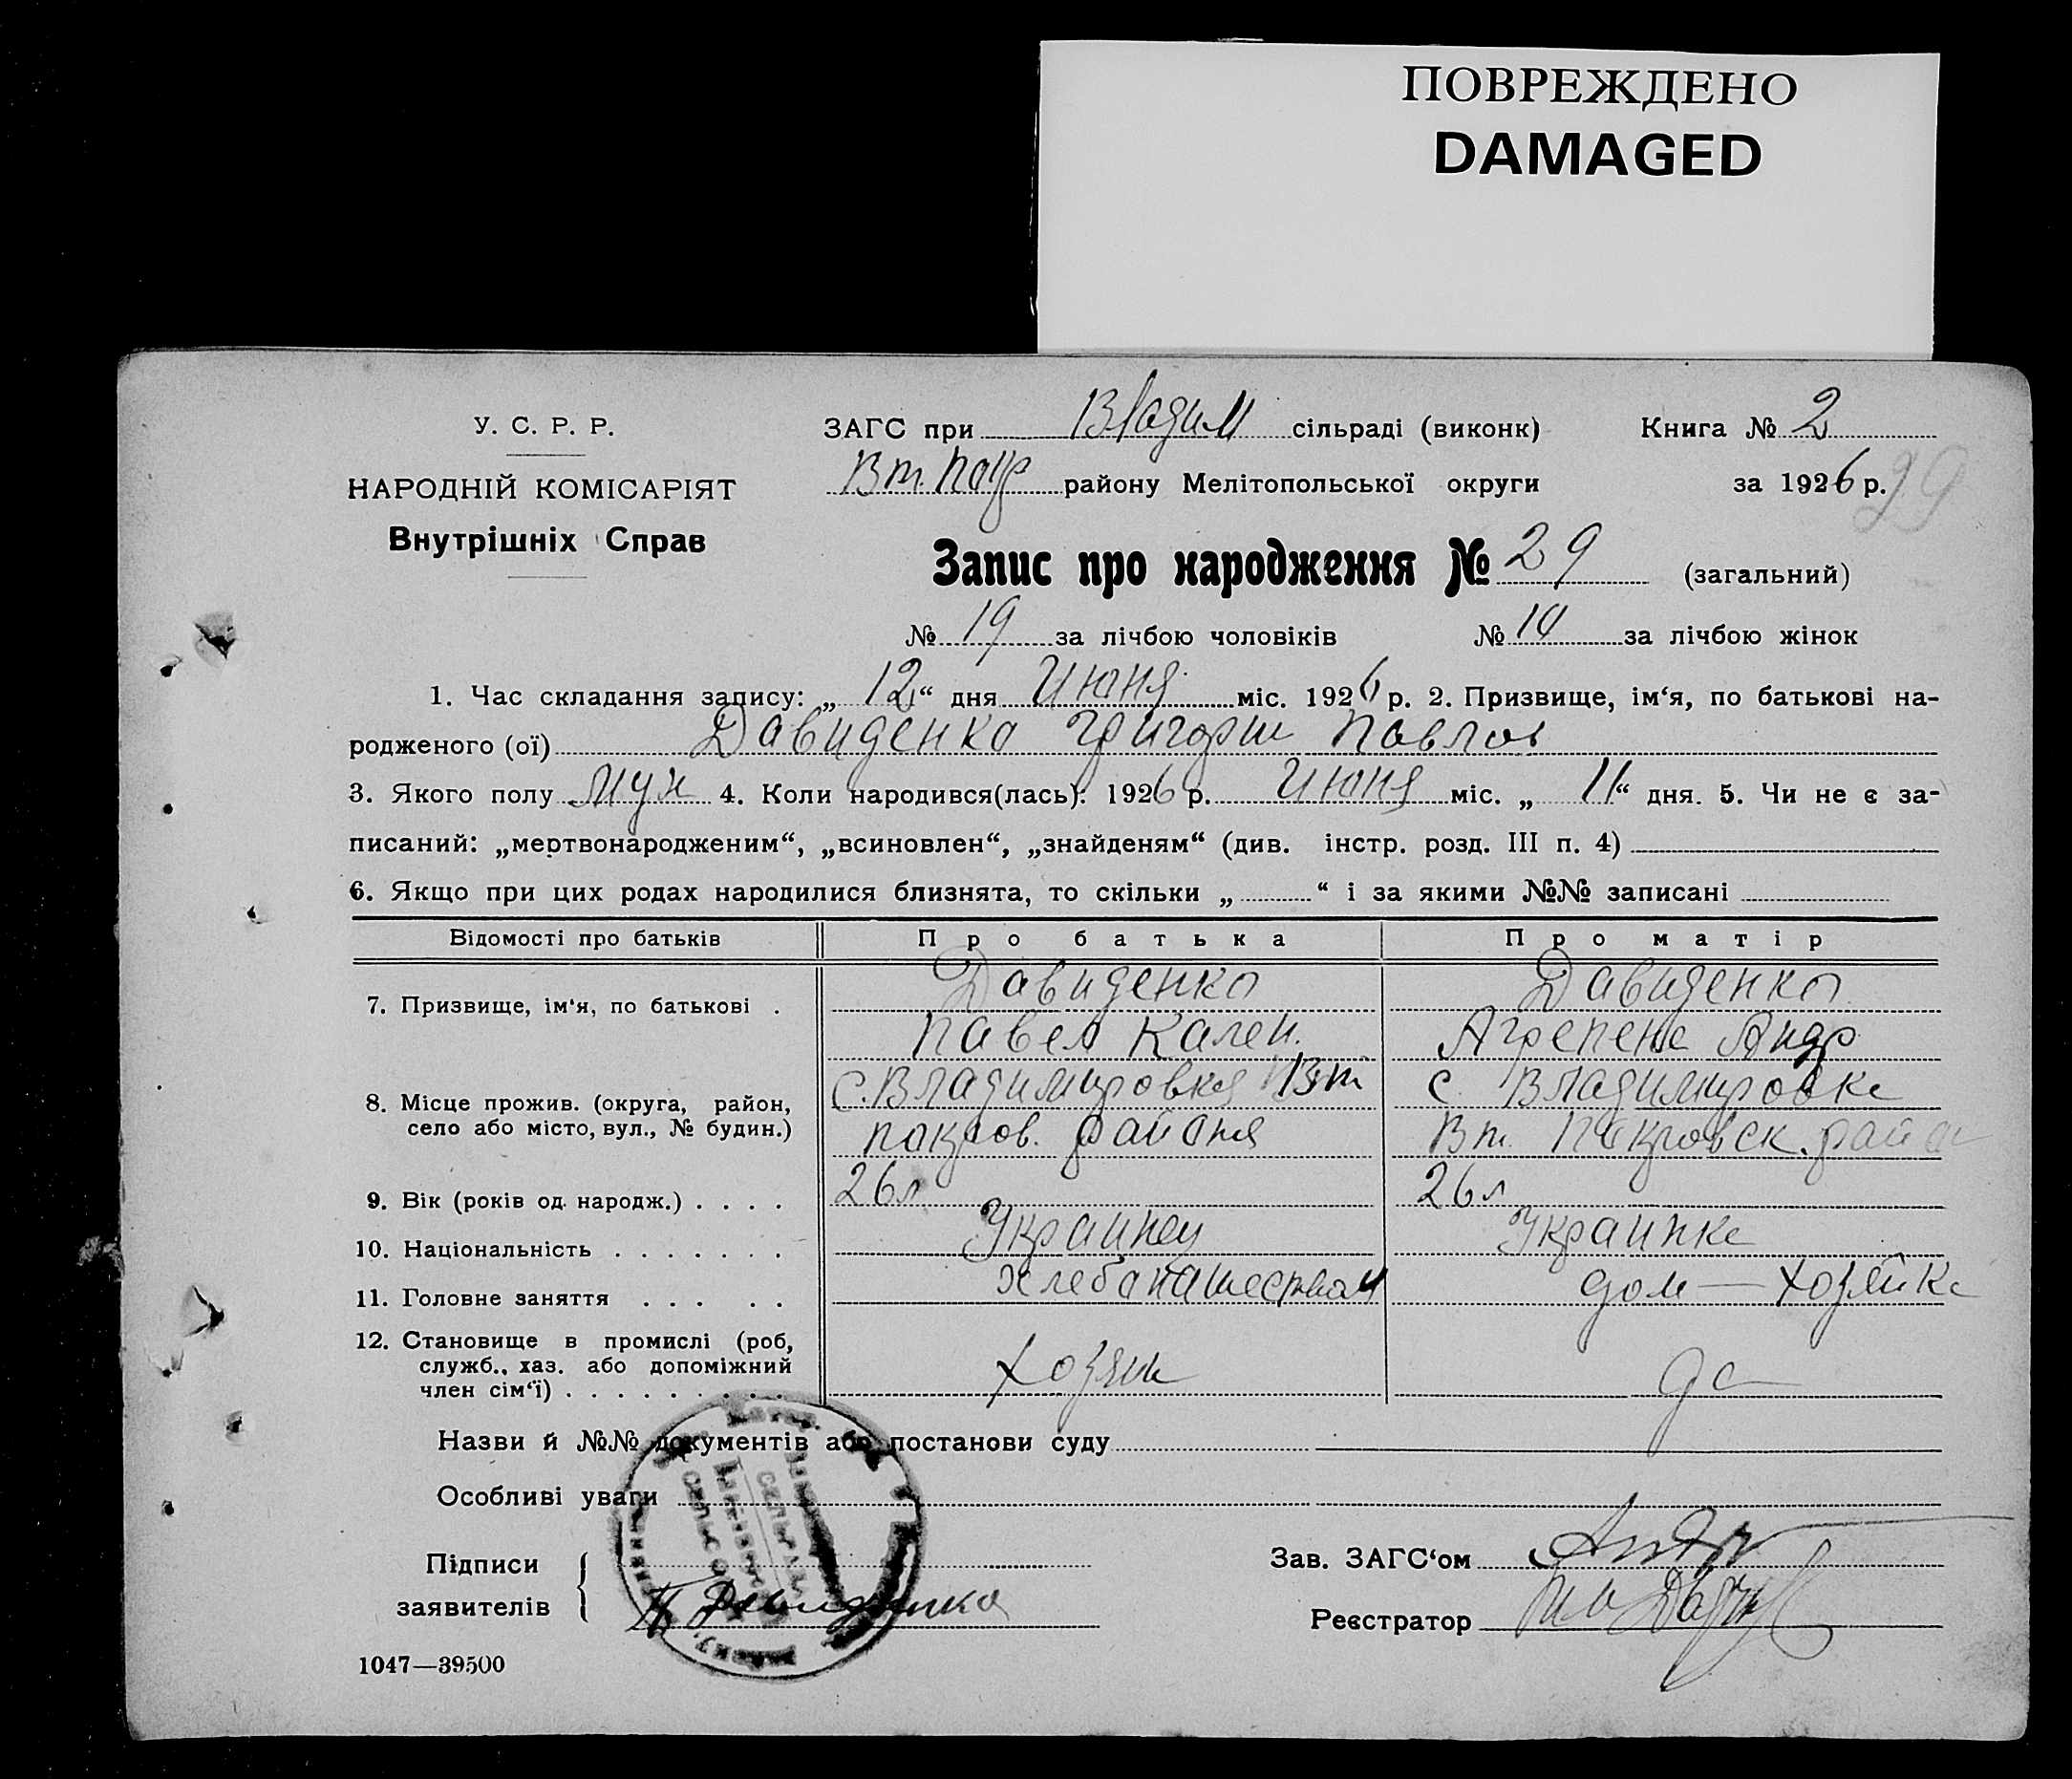 ПОВРЕЖДЕНО
DAMAGED
У. С. Р. Р.
НАРОДНІЙ КОМІСАРІЯТ
Внутрішніх Справ
ЗАГС при Владим сільраді (виконк)
Книга № 2
Вт. Покр району Мелітопольської округи
за 1926 р.
29
Запис про народження № 29 (загальний)
№ 19 за лічбою чоловіків № 10 за лічбою жінок
1. Час складання запису: „ 12 “ дня Июня міс. 1926 р. 2. Призвище, ім‘я, по батькові на-
родженого (ої) Давиденко Григорий Павлов
3. Якого полу муж 4. Коли народився(лась): 1926 р. Июня міс. „ 11 “ дня. 5. Чи не є за-
писаний: „мертвонародженим“, „всиновлен“, „знайденям“ (див. інстр. розд. III п. 4)
6. Якщо при цих родах народилися близнята, то скільки „ “ і за якими №№ записані
Відомості про батьків Про батька Про матір
7. Призвище, ім‘я, по батькові . Давиденко Давиденко
Павел Кален. Агрепена Андр
8. Місце прожив. (округа, район, село або місто, вул., № будин.)
с. Владимировка Вт с. Владимировка
покров. района Вт. Покровск. район
9. Вік (років од народж.) . . . . 26 л 26 л
10. Національність . . . . . . . Украинец Украинка
11. Головне заняття . . . . . Хлебопашеством дом — хозяйка
12. Становище в промислі (роб,
служб., хаз. або допоміжний
член сім‘ї) . . . . . . . . . Хозяин
Назви й №№ документів або постанови суду
Особливі уваги
Підписи
заявителів
П Давиденко
Зав. ЗАГС‘ом
Реєстратор
1047—39500